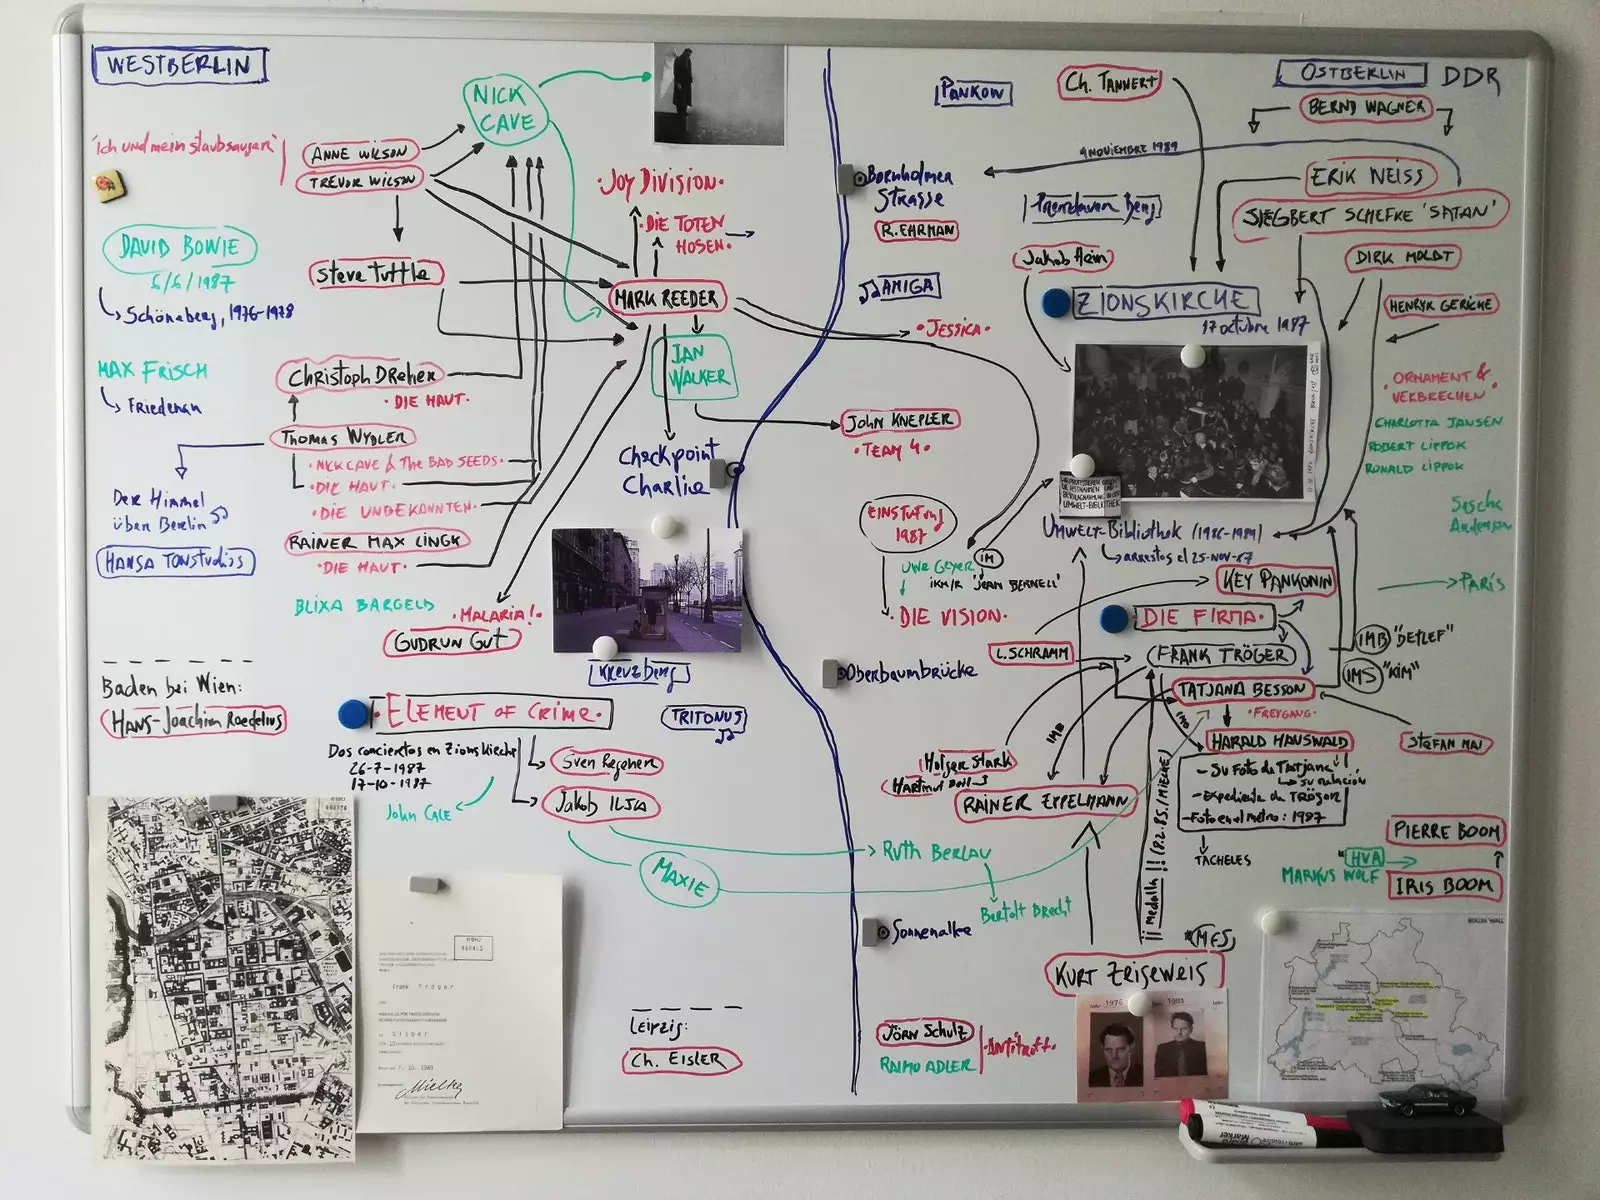 WESTBERLIN
NICK
CAVE
"Ich und mein staubsauger"
ANNE WILSON
TREVOR WILSON
DAVID BOWIE
6/6/1987
Schöneberg, 1976-1978
Steve Tuttle
MAX FRISCH
Friedenau
Christoph Dreher
· DIE HAUT ·
Thomas Wydler
· NICK CAVE & The BAD SEEDS ·
· DIE HAUT ·
· DIE UNBEKANNTEN ·
Der Himmel
über Berlin
HANSA TONSTUDIOS
RAINER MAX LINGK
· DIE HAUT ·
BLIXA BARGELD
· MALARIA! ·
GUDRUN GUT
· JOY DIVISION ·
· DIE TOTEN
HOSEN ·
MARK REEDER
IAN
WALKER
Checkpoint
Charlie
Kreuzberg
TRITONUS
Baden bei Wien:
HANS-Joachim Roedelius
· ELEMENT OF CRIME ·
Dos conciertos en Zionskirche
26-7-1987
17-10-1987
John CALE
Sven Regener
Jakob ILJA
MAXIE
Leipzig:
Ch. EISLER
Frank Tröger
Silber
7. 10. 1989
Mielke
PANKOW
Ch. TANNERT
OSTBERLIN
DDR
BERND WAGNER
9 NOVIEMBRE 1989
Bornholmer
Strasse
R. EHRMAN
ERIK NEISS
SIEGBERT SCHEFKE 'SATAN'
Jakob Hein
DIRK MOLDT
AMIGA
ZIONSKIRCHE
17 octubre 1987
HENRYK GERICKE
· JESSICA ·
· ORNAMENT &
VERBRECHEN ·
CHARLOTTA JANSEN
ROBERT LIPPOK
RONALD LIPPOK
John KNEPLER
· TEAM 4 ·
Sascha
Anderson
EINSTUFUNG
1987
UMWELT-BIBLIOTHEK
UMWELT-Bibliothek (1986-1989)
arrestos el 25-NOV-87
UWE GEYER
IM
IKM/R 'JEAN BERNELL'
· DIE VISION ·
KEY PANKONIN
PARÍS
· DIE FIRMA ·
L. SCHRAMM
FRANK TRÖGER
IMB "DETLEF"
IMS "KIM"
TATJANA BESSON
· FREYGANG ·
Oberbaumbrücke
IMB
IMB
HARALD HAUSWALD
STEFAN MAI
- Su Foto de Tatjana
su relación
- Expediente de TRÖGER
- Foto en el métro: 1987
TACHELES
Holger Stark
RAINER EPPELMANN
¡¡ medalla !! (8.2.85./MIELKE)
PIERRE BOOM
"HVA
MARKUS WOLF
IRIS BOOM
Ruth BERLAU
Bertolt Brecht
Sonnenallee
"MFS"
KURT ZEISEWEIS
1976
1981
JÖRN Schulz
RAIMO ADLER
· Antitrott ·
BERLIN WALL
Marker